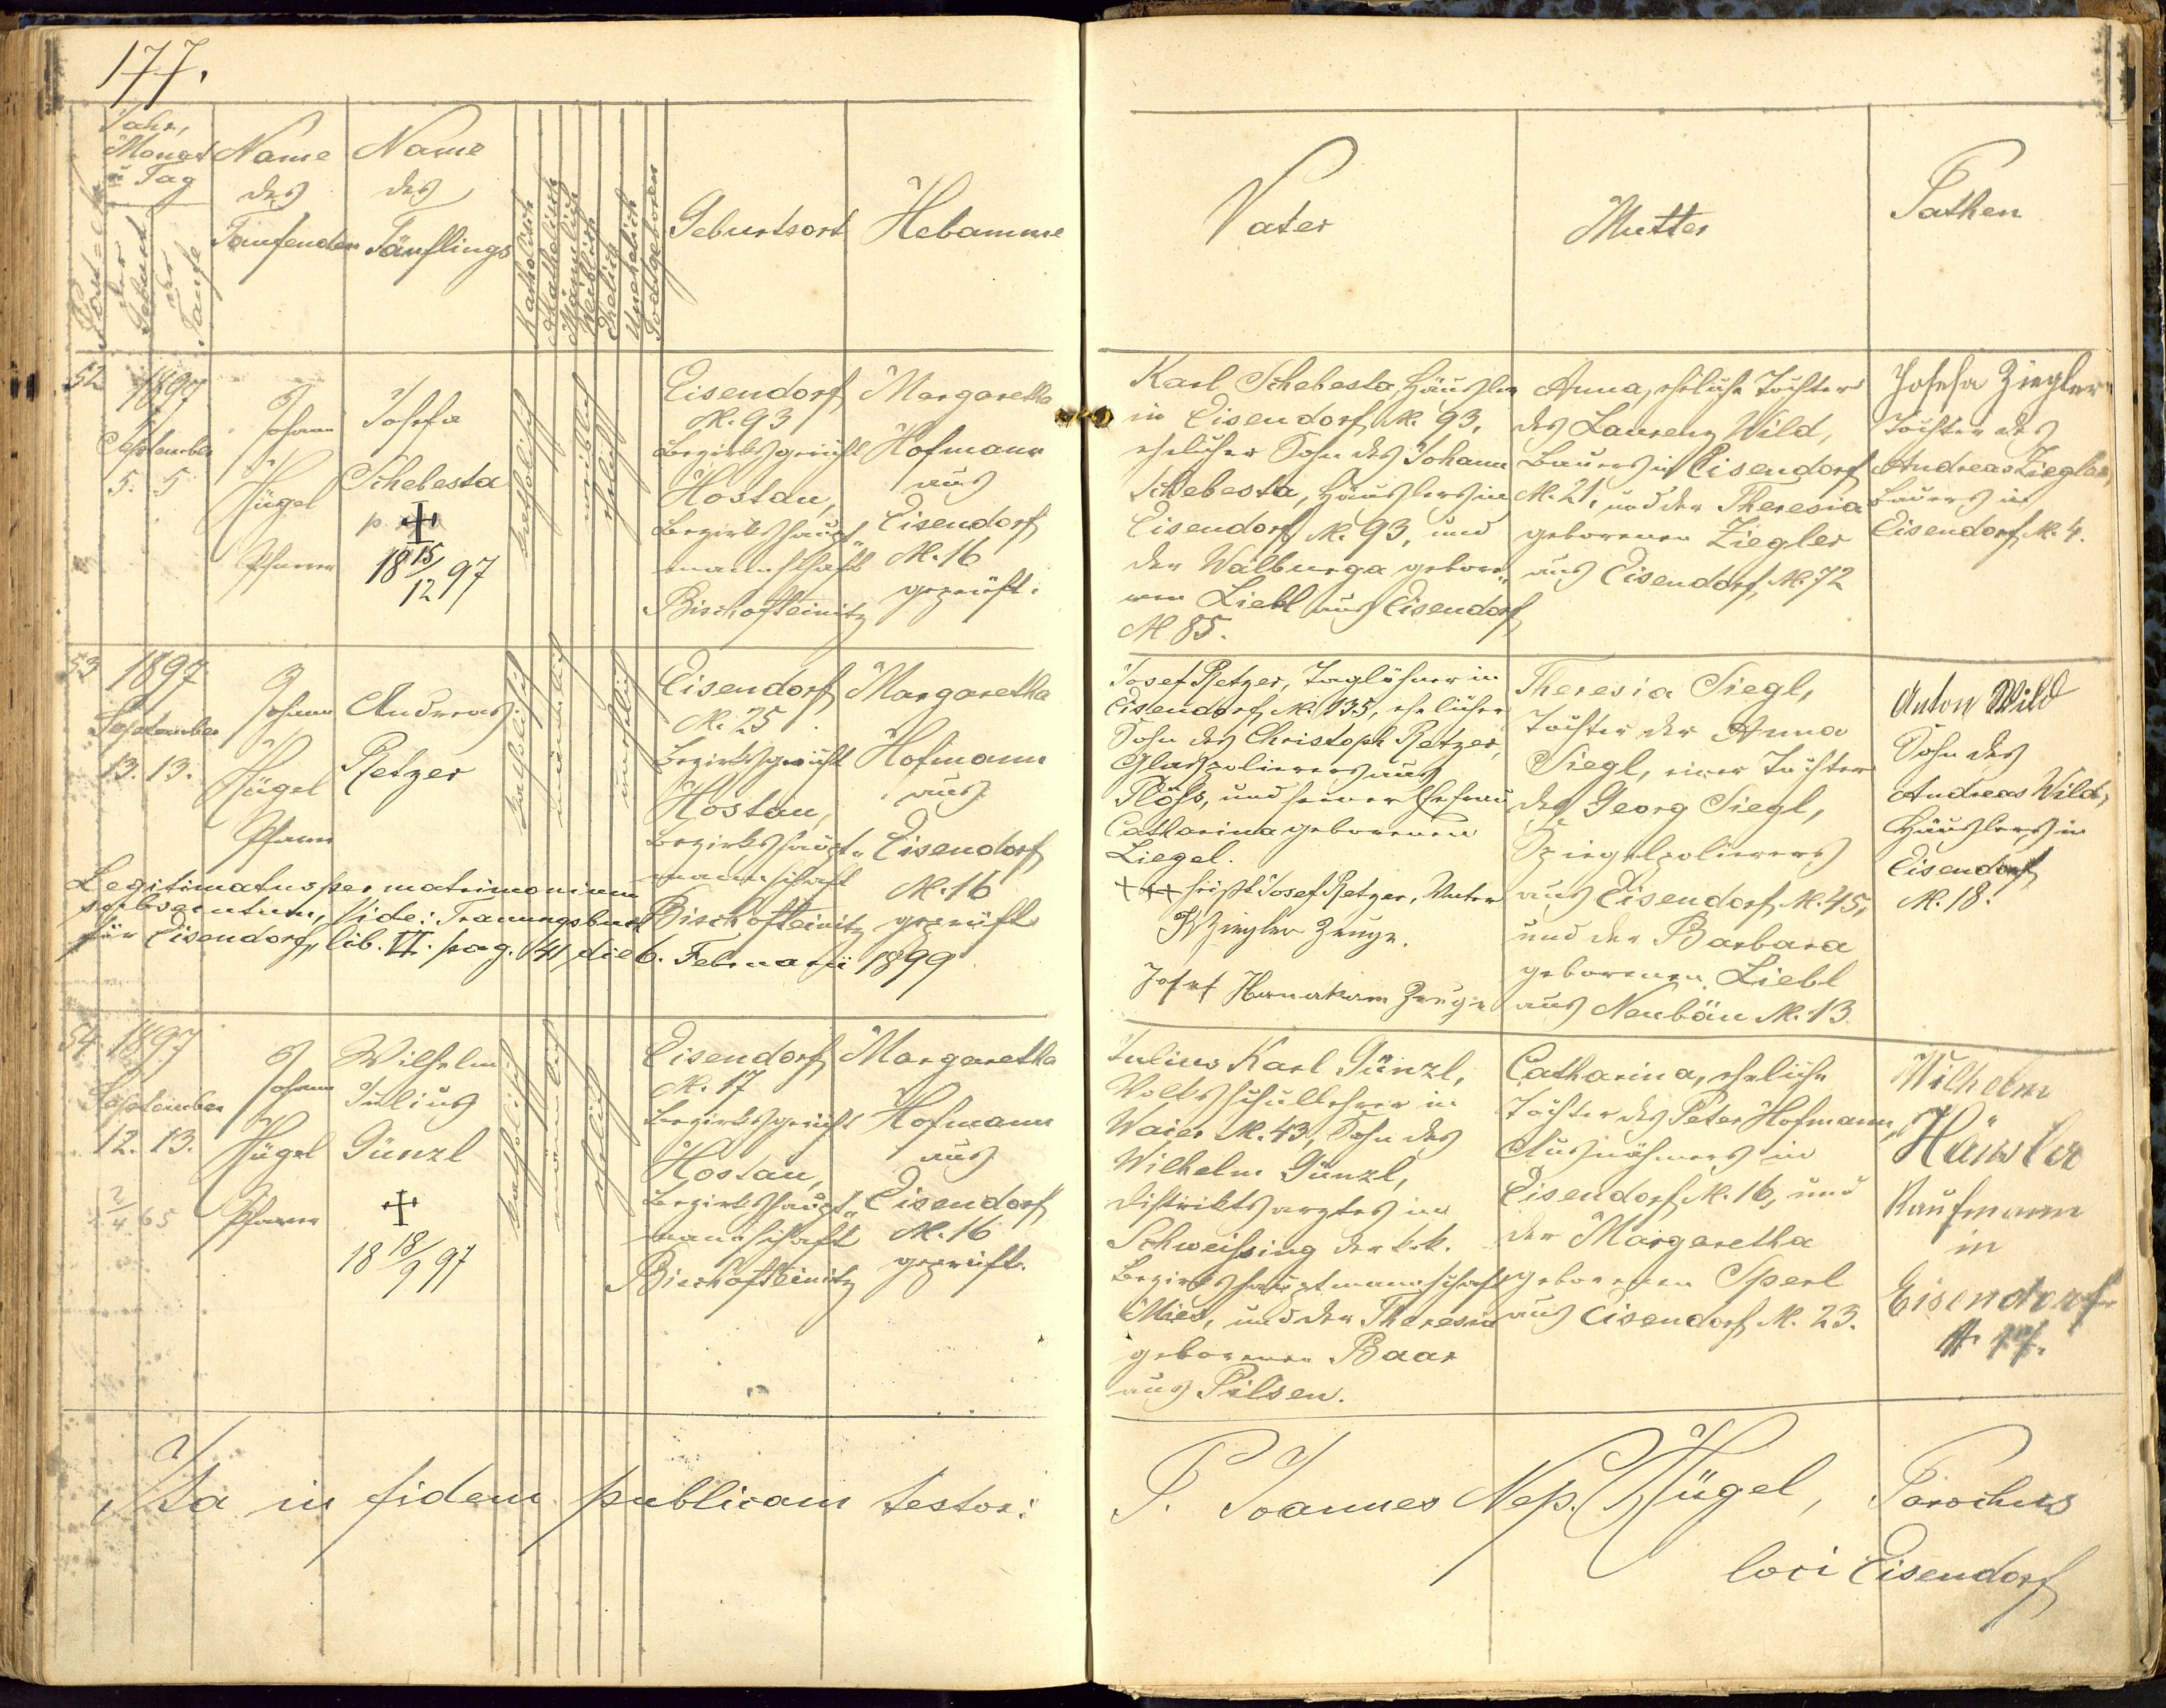 177.
Jahr,
Monat
u Tag
der
Geburt
der
Taufe
Name
des
Taufenden
Name
des
Täuflings
Katholisch
Akatholisch
Männlich
Weiblich
Ehelich
Unehelich
Todtgeboren
Geburtsort
Hebamme
Vater
Mutter
Pathen
52
1897
September
5. 5.
Johann
Hügel
Pfarrer
Josefa
Schebesta
✝
18 15/12 97
katholisch
weiblich
ehelich
Eisendorf
N. 93
Bezirksgericht
Hostau,
Bezirkshaupt„
mannschaft
Bischofteinitz
Margaretha
Hofmann
aus
Eisendorf
N. 16
geprüft.
Karl Schebesta, Häusler
in Eisendorf N. 93,
ehelicher Sohn des Johann
Schebesta, Häuslers in
Eisendorf N. 93, und
der Walburga gebore„
nen Liebl aus Eisendorf
N 85.
Anna, eheliche Tochter
des Laurenz Wild,
Bauers in Eisendorf
N. 21, und der Theresia
geborenen Ziegler
aus Eisendorf N. 72
Josefa Ziegler
Tochter des
Andreas Ziegler,
Bauers in
Eisendorf N. 4.
53
1897
September
13. 13.
Johann
Hügel
Pfarrer
Andreas
Retzer
katholisch
männlich
unehelich
Eisendorf
N. 25
Bezirksgericht
Hostau,
Bezirkshaupt„
mannschaft
Bischofteinitz
Margaretha
Hofmann
aus
Eisendorf
N. 16
geprüft
Legitimatus per matrimonium
subsecutum, Vide: Trauungsbuch
für Eisendorf, lib. VI. pag. 41 die 6. Februarii 1899
Josef Retzer, Taglöhner in
Eisendorf N. 135, ehelicher
Sohn des Christoph Retzer,
Glaspolierers aus
Plöß, und seiner Ehefrau
Catharina geborenen
Liegel.
+++ heißt Josef Retzer, Vater
Ziegler Zeuge.
Josef Zeuge
Theresia Siegl,
Tochter der Anna
Siegl, einer Tochter
des Georg Siegl,
Spiegelpolierers
aus Eisendorf N. 45,
und der Barbara
geborenen Liebl
aus Neubäu N. 13
Anton Wild
Sohn des
Andreas Wild,
Häuslers in
Eisendorf
N. 18.
54
1897
September
12. 13.
Johann
Hügel
Pfarrer
Wilhelm
Julius
Günzl
✝
18 18/9 97
katholisch
männlich
ehelich
Eisendorf
N. 17
Bezirksgericht
Hostau,
Bezirkshaupt„
mannschaft
Bischofteinitz
Margaretha
Hofmann
aus
Eisendorf
N. 16
geprüft.
Julius Karl Günzl,
Volksschullehrer in
Waier N. 43, Sohn des
Wilhelm Günzl,
Distriktsarztes in
Schweißing der k. k.
Bezirkshauptmannschaft
Mies, und der Theresia
geborenen Baar
aus Pilsen.
Catharina, eheliche
Tochter des Peter Hofmann,
Ausnähmers in
Eisendorf N. 16, und
der Margaretha
geborenen Sperl
aus Eisendorf N. 23.
Wilhelm
Häusler
Kaufmann
in
Eisendorf
N 17.
Ita in fidem publicam testor:
P. Joannes Nep. Hügel, Parochus
loci Eisendorf